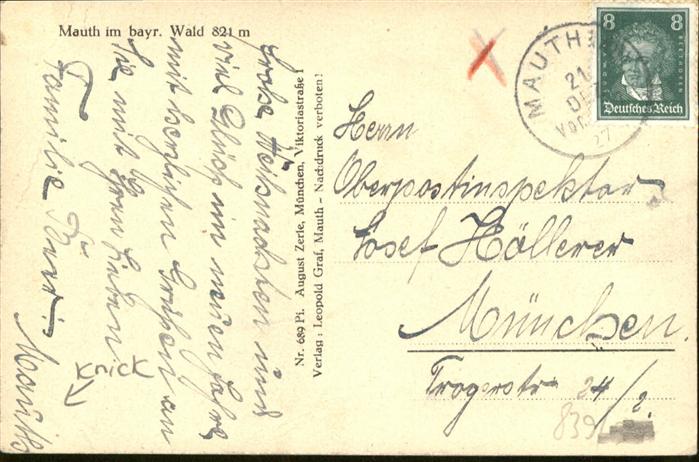 Mauth im bayr. Wald 821 m
Frohe Weihnachten und
viel Glück im neuen Jahre
mit herzlichen Grüßen an
Sie mit Ihren Lieben
Familie
Mauth
Knick
Nr. 689 Pi. August Zerle, München, Viktoriastraße 1
Verlag: Leopold Graf, Mauth – Nachdruck verboten!
MAUTH
21
DEZ
27
8 8
BEETHOVEN
Deutsches Reich
Herrn
Oberpostinspektor
Josef Höllerer
München.
Trogerstr. 24/2.
839